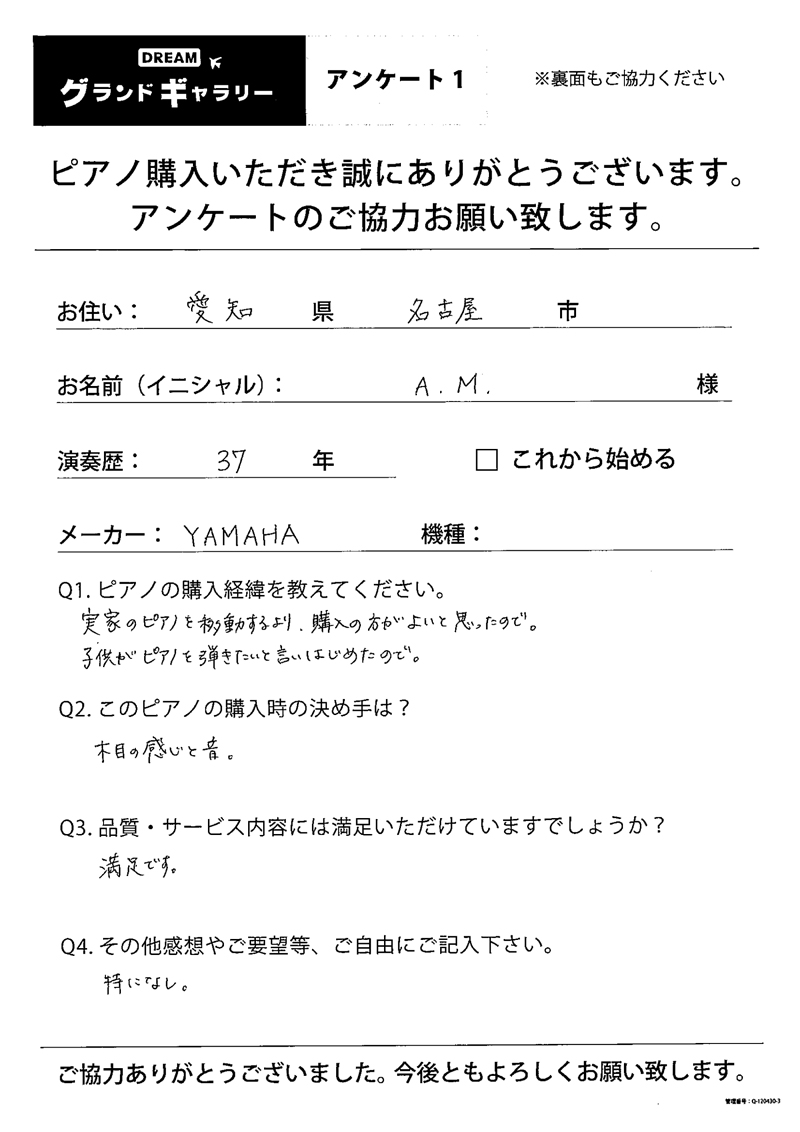 DREAM
グランドギャラリー
アンケート 1
※裏面もご協力ください
ピアノ購入いただき誠にありがとうございます。
アンケートのご協力お願い致します。
お住い： 愛知 県 名古屋 市
お名前（イニシャル）： A.M. 様
演奏歴： 37 年 □ これから始める
メーカー： YAMAHA 機種：
Q1. ピアノの購入経緯を教えてください。
実家のピアノを移動するより、購入の方がよいと思ったので。
子供がピアノを弾きたいと言いはじめたので。
Q2. このピアノの購入時の決め手は？
木目の感じと音。
Q3. 品質・サービス内容には満足いただけていますでしょうか？
満足です。
Q4. その他感想やご要望等、ご自由にご記入下さい。
特になし。
ご協力ありがとうございました。今後ともよろしくお願い致します。
管理番号：Q-120430-3